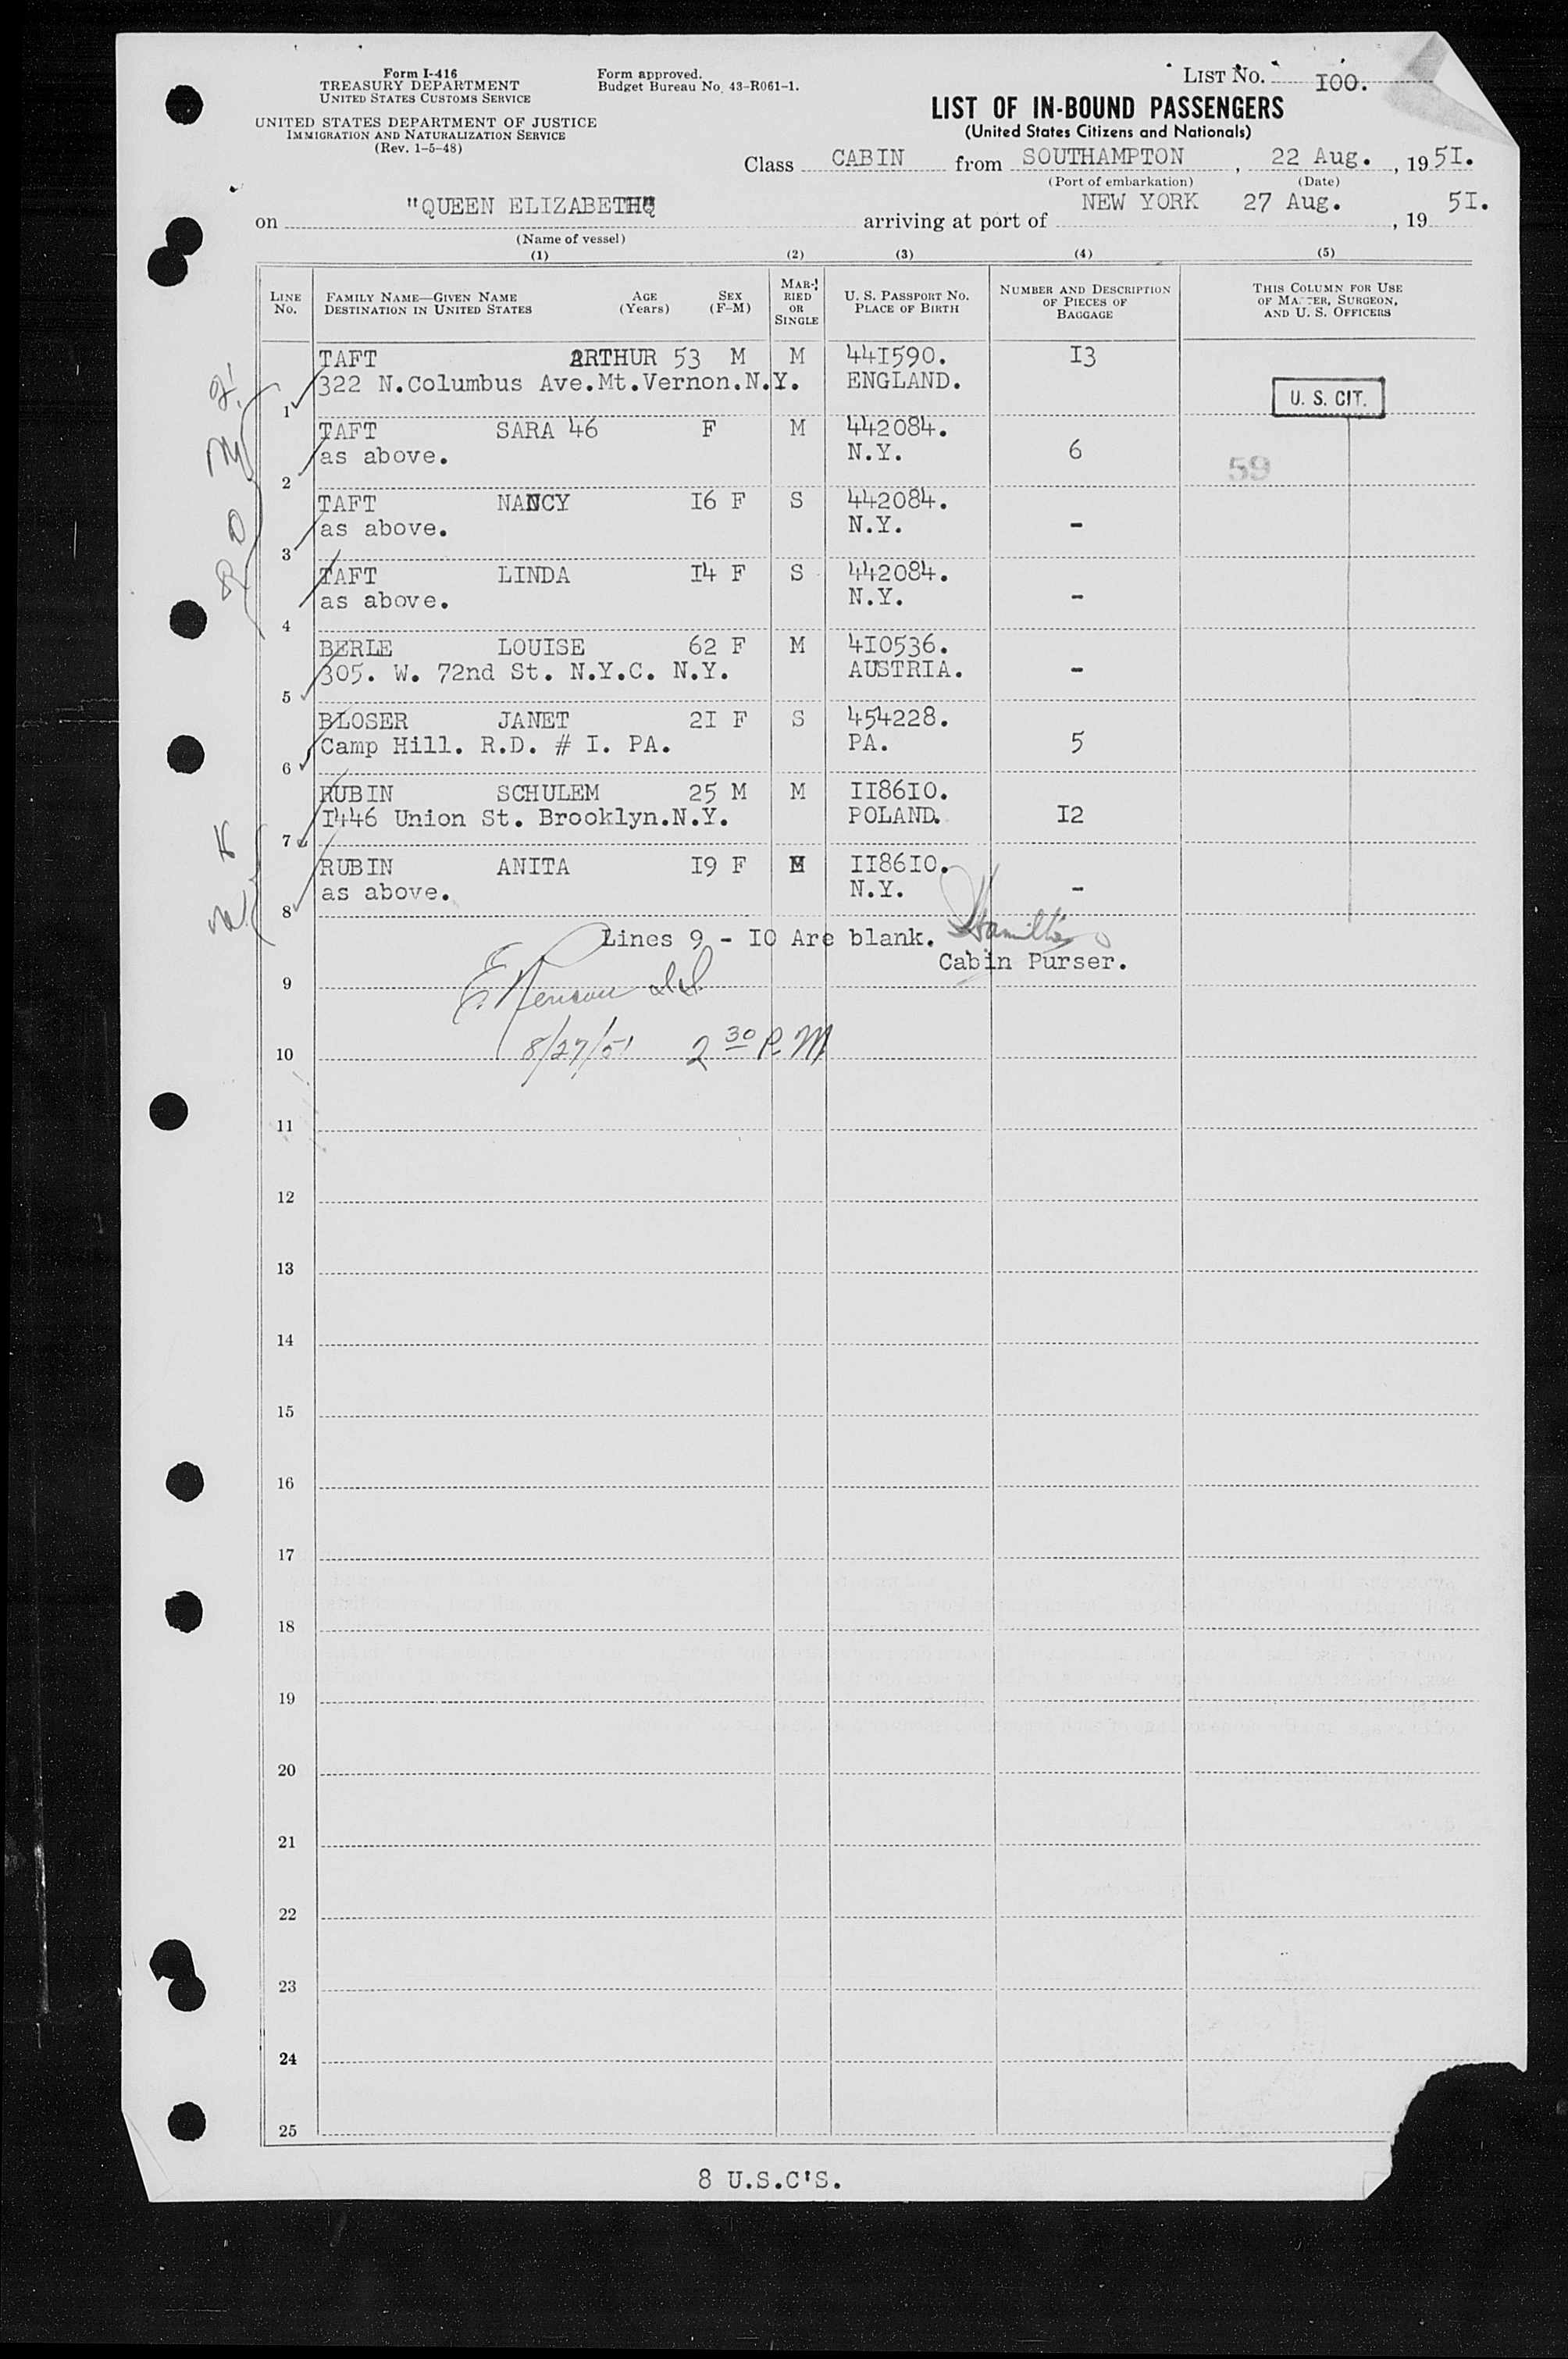 Form I-416
TREASURY DEPARTMENT
UNITED STATES CUSTOMS SERVICE
UNITED STATES DEPARTMENT OF JUSTICE
IMMIGRATION AND NATURALIZATION SERVICE
(Rev. 1-5-48)
Form approved.
Budget Bureau No. 43-R061-1.
LIST NO. I00.
LIST OF IN-BOUND PASSENGERS
(United States Citizens and Nationals)
Class CABIN from SOUTHAMPTON, 22 Aug., 1951.
(Port of embarkation) (Date)
on "QUEEN ELIZABETH" arriving at port of NEW YORK 27 Aug., 1951.
(Name of vessel)
(1) (2) (3) (4) (5)
LINE NO. FAMILY NAME—GIVEN NAME DESTINATION IN UNITED STATES AGE (Years) SEX (F-M) MARRIED OR SINGLE U. S. PASSPORT NO. PLACE OF BIRTH NUMBER AND DESCRIPTION OF PIECES OF BAGGAGE THIS COLUMN FOR USE OF MASTER, SURGEON, AND U. S. OFFICERS
TAFT ARTHUR 53 M M 44I590. I3
322 N.Columbus Ave.Mt.Vernon.N.Y. ENGLAND.
1 U. S. CIT.
TAFT SARA 46 F M 442084.
as above. N.Y. 6
2 59
TAFT NANCY I6 F S 442084.
as above. N.Y. -
3
TAFT LINDA I4 F S 442084.
as above. N.Y. -
4
BERLE LOUISE 62 F M 4I0536.
305. W. 72nd St. N.Y.C. N.Y. AUSTRIA. -
5
BLOSER JANET 2I F S 454228.
Camp Hill. R.D. # I. PA. PA. 5
6
RUBIN SCHULEM 25 M M II86I0.
I446 Union St. Brooklyn.N.Y. POLAND. I2
7
RUBIN ANITA I9 F M II86I0.
as above. N.Y. -
8
Lines 9 - I0 Are blank. Hamilton
Cabin Purser.
9
8/27/51 2 30 P.M
10
11
12
13
14
15
16
17
18
19
20
21
22
23
24
25
8 U.S.C'S.